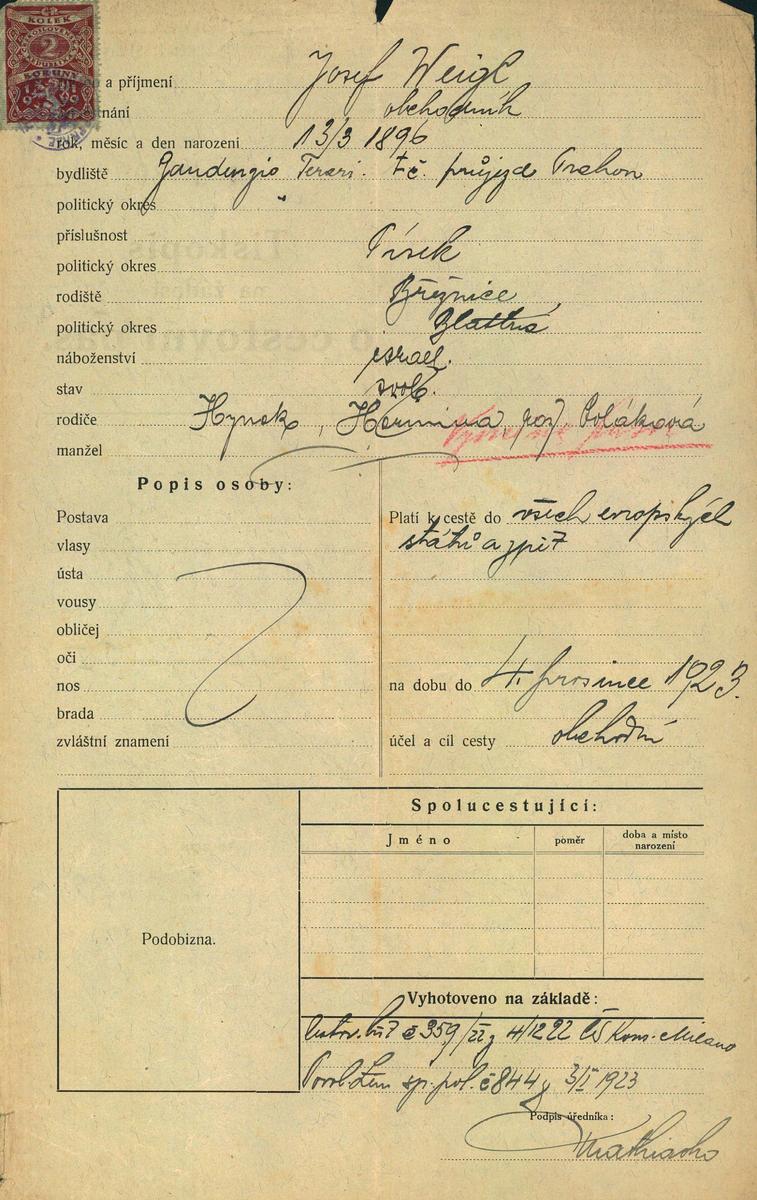 KOLEK
2
KORUNY
a příjmení Josef Weigl
obchodník
rok, měsíc a den narození 13/3 1896
bydliště Gaudenzio Ferari. t.č. průjezd Prahou
politický okres
příslušnost
politický okres Písek
rodiště Březnice
politický okres Blatná
náboženství israel.
stav svob.
rodiče Hynek, Hermina, roz. Poláková
manžel
Popis osoby:
Postava
vlasy
ústa
vousy
obličej
oči
nos
brada
zvláštní znamení
Platí k cestě do všech evropských
států a zpět
na dobu do 4. prosince 1923.
účel a cíl cesty obchodní
Podobizna.
Spolucestující:
Jméno poměr doba a místo narození
Vyhotoveno na základě:
Cestov. list č 359/22 z 4/12 22 ČS Kons. Milano
sp. pol. č 844 z 3/I 1923
Podpis úředníka: